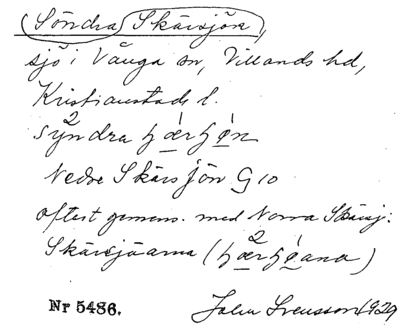 Söndra Skärsjön,
sjö i Vånga sn, Villands hd,
Kristianstads l.
Nedre Skärsjön G 10
oftast gemens. med Norra Skärsj:
Skärsjöarna
Nr 5486. John Svensson 1929